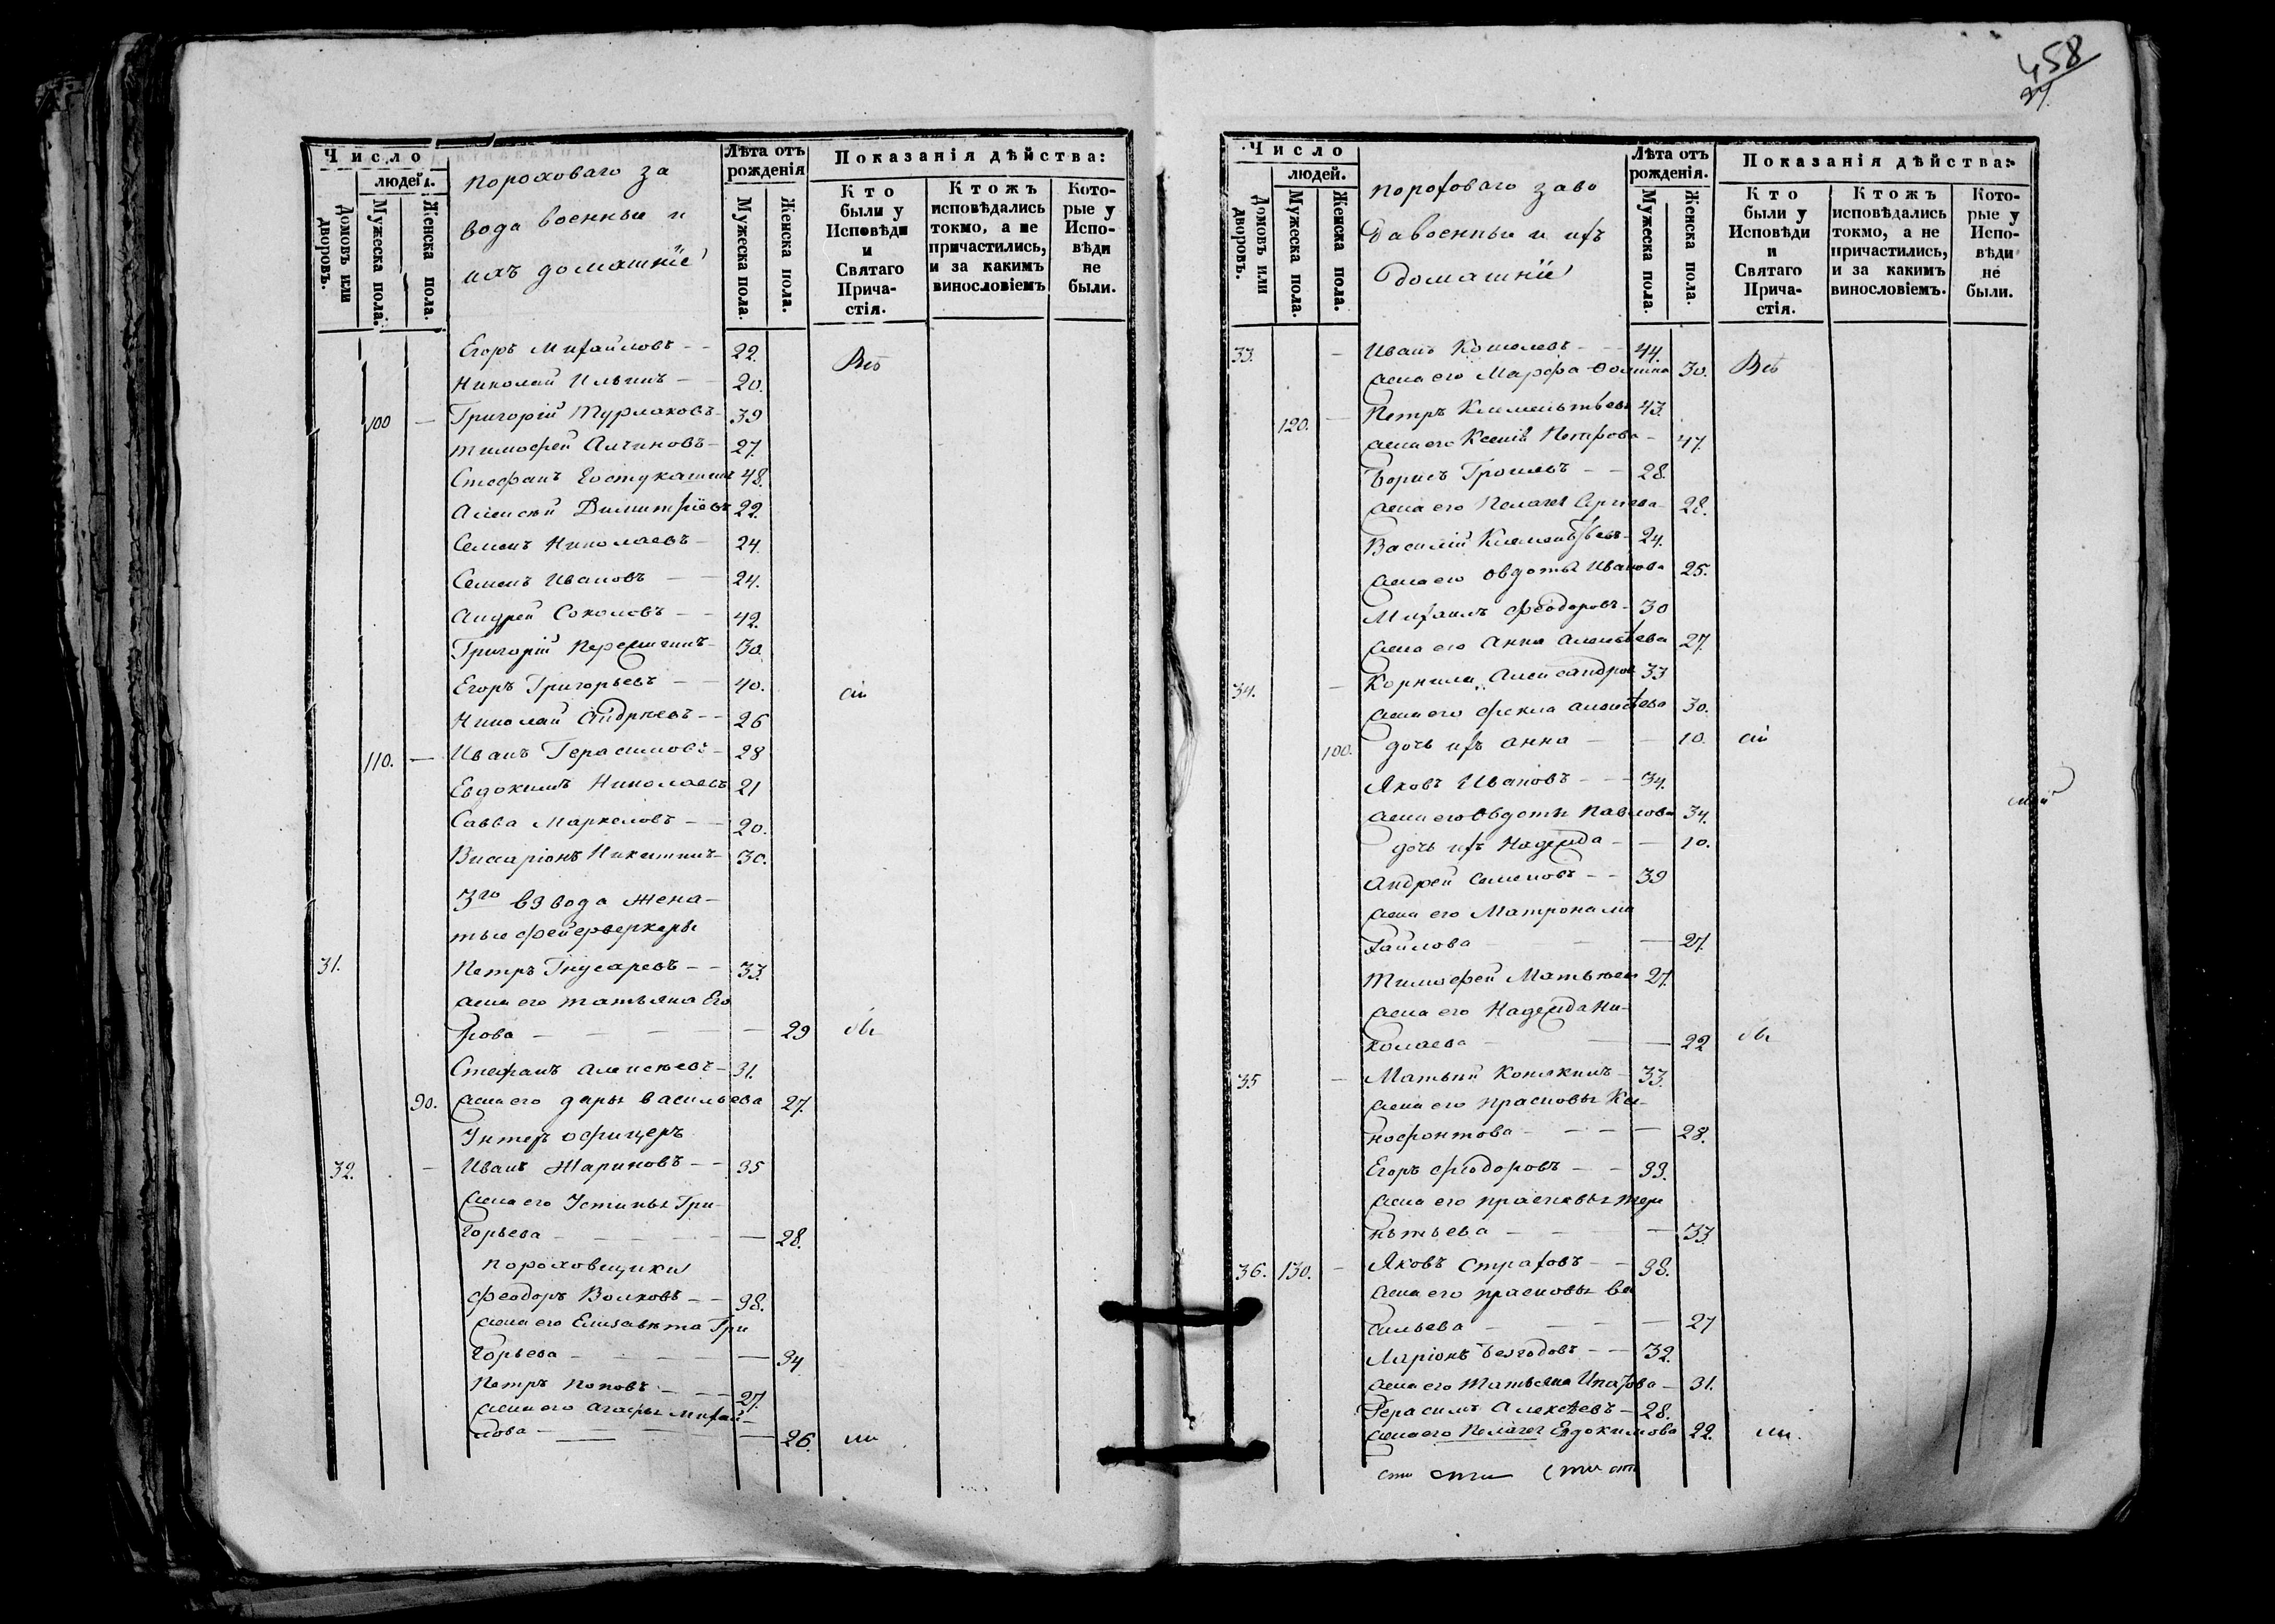 458
27.
Число
людей.
Домовъ или дворовъ.
Мужеска пола.
Женска пола.
пороховаго за
вода военные и
ихъ домашніе
Лѣта отъ рожденія
Мужеска пола.
Женска пола.
Показанія дѣйства:
Кто были у Исповѣди и Святаго Прича-стія.
Ктожъ исповѣдались токмо, а не причастились, и за какимъ винословіемъ
Кото-рые у Испо-вѣди не были.
Егоръ Михайловъ - - 22. Всѣ
Николай Ильинъ - - 20.
100 — Григорій Турлаковъ - 39
Тимофей Алчиновъ - 27.
Стефанъ 48.
Алексѣй Димитріевъ 22.
Семенъ Николаевъ - 24.
Семенъ Ивановъ - - 24.
Андрей Соколовъ - - 42.
Григорій - 30.
Егоръ Григорьевъ - - 40. сіи
Николай Андрѣевъ - - 26
110. — Иванъ Герасимовъ - 28
Евдокимъ Николаевъ 21
Савва Маркеловъ - - 20.
Виссаріонъ Никитинъ - 30.
3го взвода жена-
тые фейерверкеры
31. Петръ Гнусаревъ - - 33.
жена его Татьяна Его
рова - - - - 29 бы
Стефанъ Алексѣевъ - 31.
90. жена его Дарья Васильева 27.
Унтеръ офицеръ
32. - Иванъ Жариновъ - - 35
жена его Устинья Гри-
горьева - - - 28.
пороховщики
Феодоръ Волковъ - - 38.
жена его Елизавѣта Гри
горьева - - - 34
Петръ Поповъ - - - 27.
жена его Агафья Михай-
лова - - - 26. ли
Число
людей.
Домовъ или дворовъ.
Мужеска пола.
Женска пола.
пороховаго заво
да военные и ихъ
домашніе
Лѣта отъ рожденія.
Мужеска пола.
Женска пола.
Показанія дѣйства:
Кто были у Исповѣди и Святаго Прича-стія.
Ктожъ исповѣдались токмо, а не причастились, и за какимъ винословіемъ.
Кото-рые у Испо-вѣди не были.
33. - Иванъ Кошелевъ - - 44. Всѣ
жена его Марфа Фомина 30.
120. — Петръ Климентьевъ 43.
жена его Ксенія Петрова - 47.
Борисъ - - 28.
жена его Пелагея Сергѣева - 28.
Василій Климентьевъ - 24.
жена его Овдотья Иванова 25.
Михаилъ Феодоровъ - 30
жена его Анна Алексѣева 27.
34. - Корнила Александровъ 33
жена его Фекла Алексѣева 30.
100. дочь ихъ Анна - - 10. сіи
Яковъ Ивановъ - - - 34.
жена его Овдотья Павлова 34.
дочь ихъ Надежда - - 10.
Андрей Семеновъ - - 39
жена его Матрона Ми
хайлова - - - 27.
Тимофей Матвѣевъ 27.
жена его Надежда Ни-
колаева - - - 22 бы
35 - Матвѣй Конякинъ - 33.
жена его Прасковья Ксе-
нофонтова - - - 28.
Егоръ Феодоровъ - - 33.
жена его Прасковья Тере
нтьева - - - 33.
36. 130. - Яковъ Страховъ - - 38.
жена его Прасковья Ва
сильева - - - 27
Ларіонъ Безгодовъ - - 32.
жена его Татьяна Ипатова - 31.
Герасимъ Алексѣевъ - 28.
жена его Пелагея Евдокимова 22. ли.